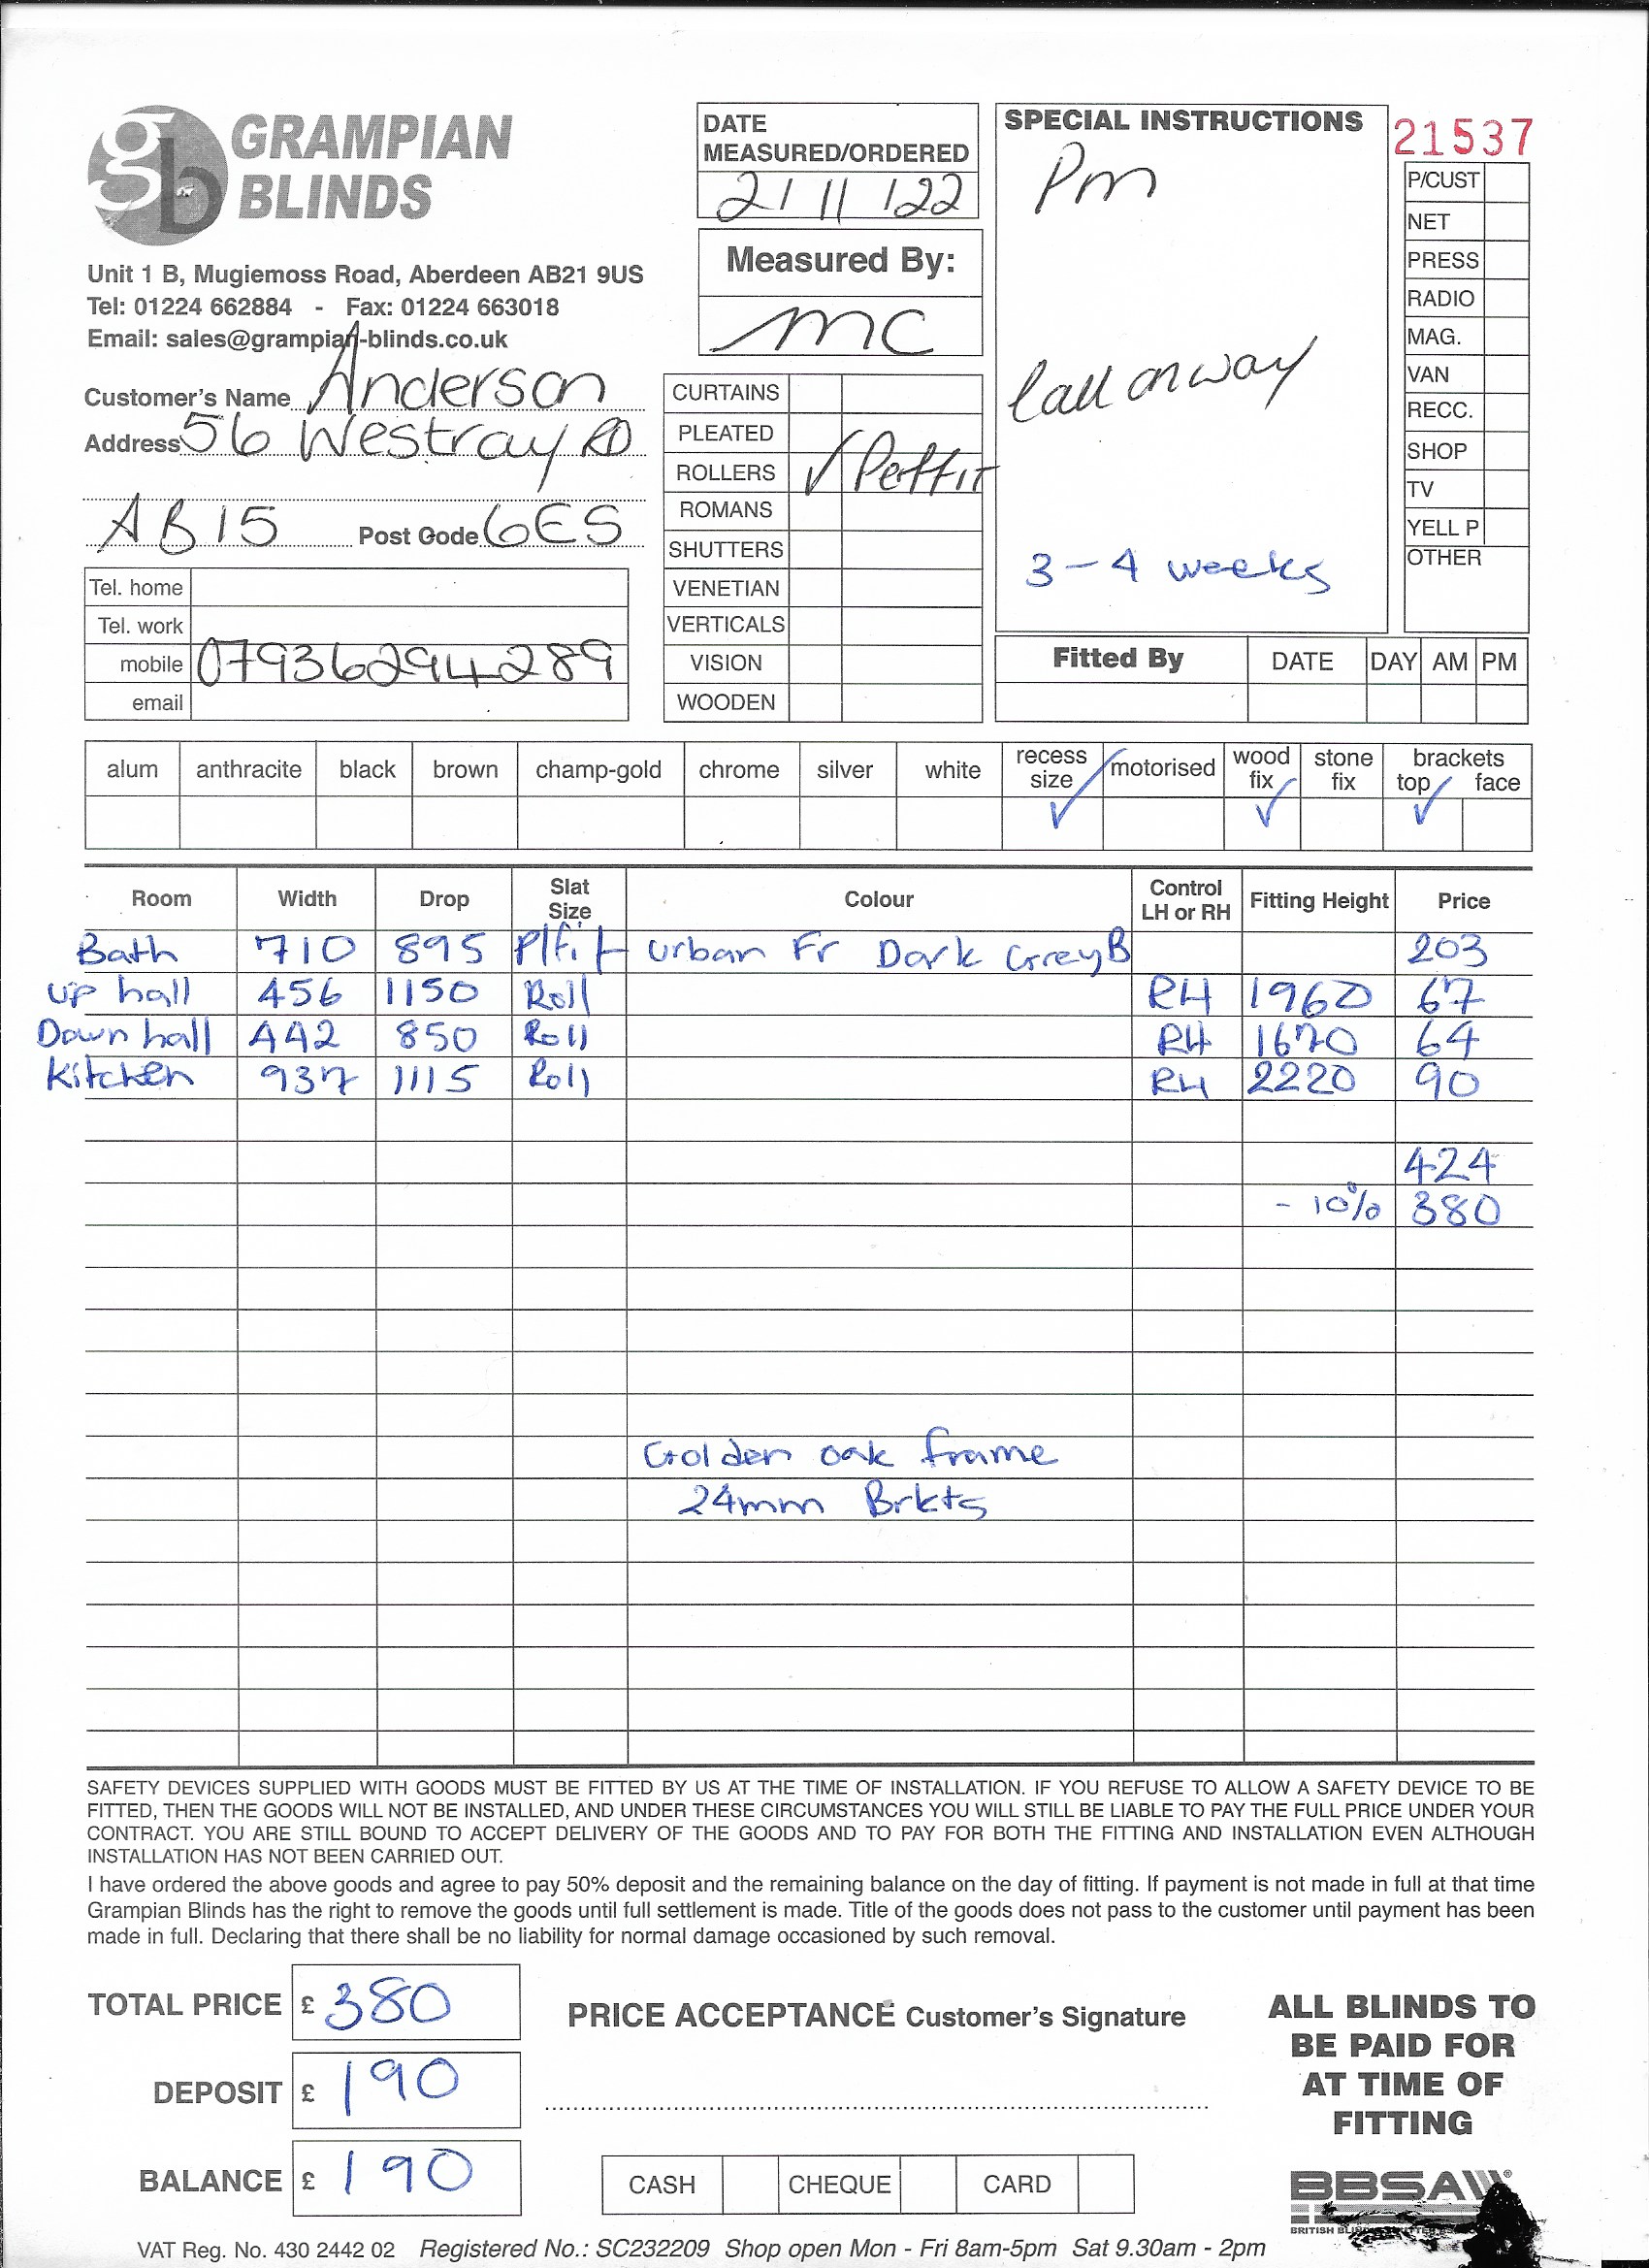 GRAMPIAN
BLINDS
Unit 1 B, Mugiemoss Road, Aberdeen AB21 9US
Tel: 01224 662884 - Fax: 01224 663018
Email: sales@grampian-blinds.co.uk
Customer's Name Anderson
Address 56 Westray RD
AB15 Post Code 6ES
Tel. home
Tel. work
mobile 07936294289
email
DATE
MEASURED/ORDERED
21 11 122
Measured By:
MC
CURTAINS
PLEATED
ROLLERS ✓ Perfit
ROMANS
SHUTTERS
VENETIAN
VERTICALS
VISION
WOODEN
SPECIAL INSTRUCTIONS
Pm
Call on way
3-4 weeks
21537
P/CUST
NET
PRESS
RADIO
MAG.
VAN
RECC.
SHOP
TV
YELL P
OTHER
Fitted By DATE DAY AM PM
alum anthracite black brown champ-gold chrome silver white recess size ✓ motorised wood fix ✓ stone fix brackets top ✓ face
Room Width Drop Slat Size Colour Control LH or RH Fitting Height Price
Bath 710 895 P/fit Urban Fr Dark Grey B 203
up hall 456 1150 Roll RH 1960 67
Down hall 442 850 Roll RH 1670 64
Kitchen 937 1115 Roll RH 2220 90
424
- 10% 380
Golden oak frame
24mm Brkts
SAFETY DEVICES SUPPLIED WITH GOODS MUST BE FITTED BY US AT THE TIME OF INSTALLATION. IF YOU REFUSE TO ALLOW A SAFETY DEVICE TO BE
FITTED, THEN THE GOODS WILL NOT BE INSTALLED, AND UNDER THESE CIRCUMSTANCES YOU WILL STILL BE LIABLE TO PAY THE FULL PRICE UNDER YOUR
CONTRACT. YOU ARE STILL BOUND TO ACCEPT DELIVERY OF THE GOODS AND TO PAY FOR BOTH THE FITTING AND INSTALLATION EVEN ALTHOUGH
INSTALLATION HAS NOT BEEN CARRIED OUT.
I have ordered the above goods and agree to pay 50% deposit and the remaining balance on the day of fitting. If payment is not made in full at that time
Grampian Blinds has the right to remove the goods until full settlement is made. Title of the goods does not pass to the customer until payment has been
made in full. Declaring that there shall be no liability for normal damage occasioned by such removal.
TOTAL PRICE £ 380
DEPOSIT £ 190
BALANCE £ 190
PRICE ACCEPTANCE Customer's Signature
CASH CHEQUE CARD
ALL BLINDS TO
BE PAID FOR
AT TIME OF
FITTING
BBSA
BRITISH
VAT Reg. No. 430 2442 02 Registered No.: SC232209 Shop open Mon - Fri 8am-5pm Sat 9.30am - 2pm